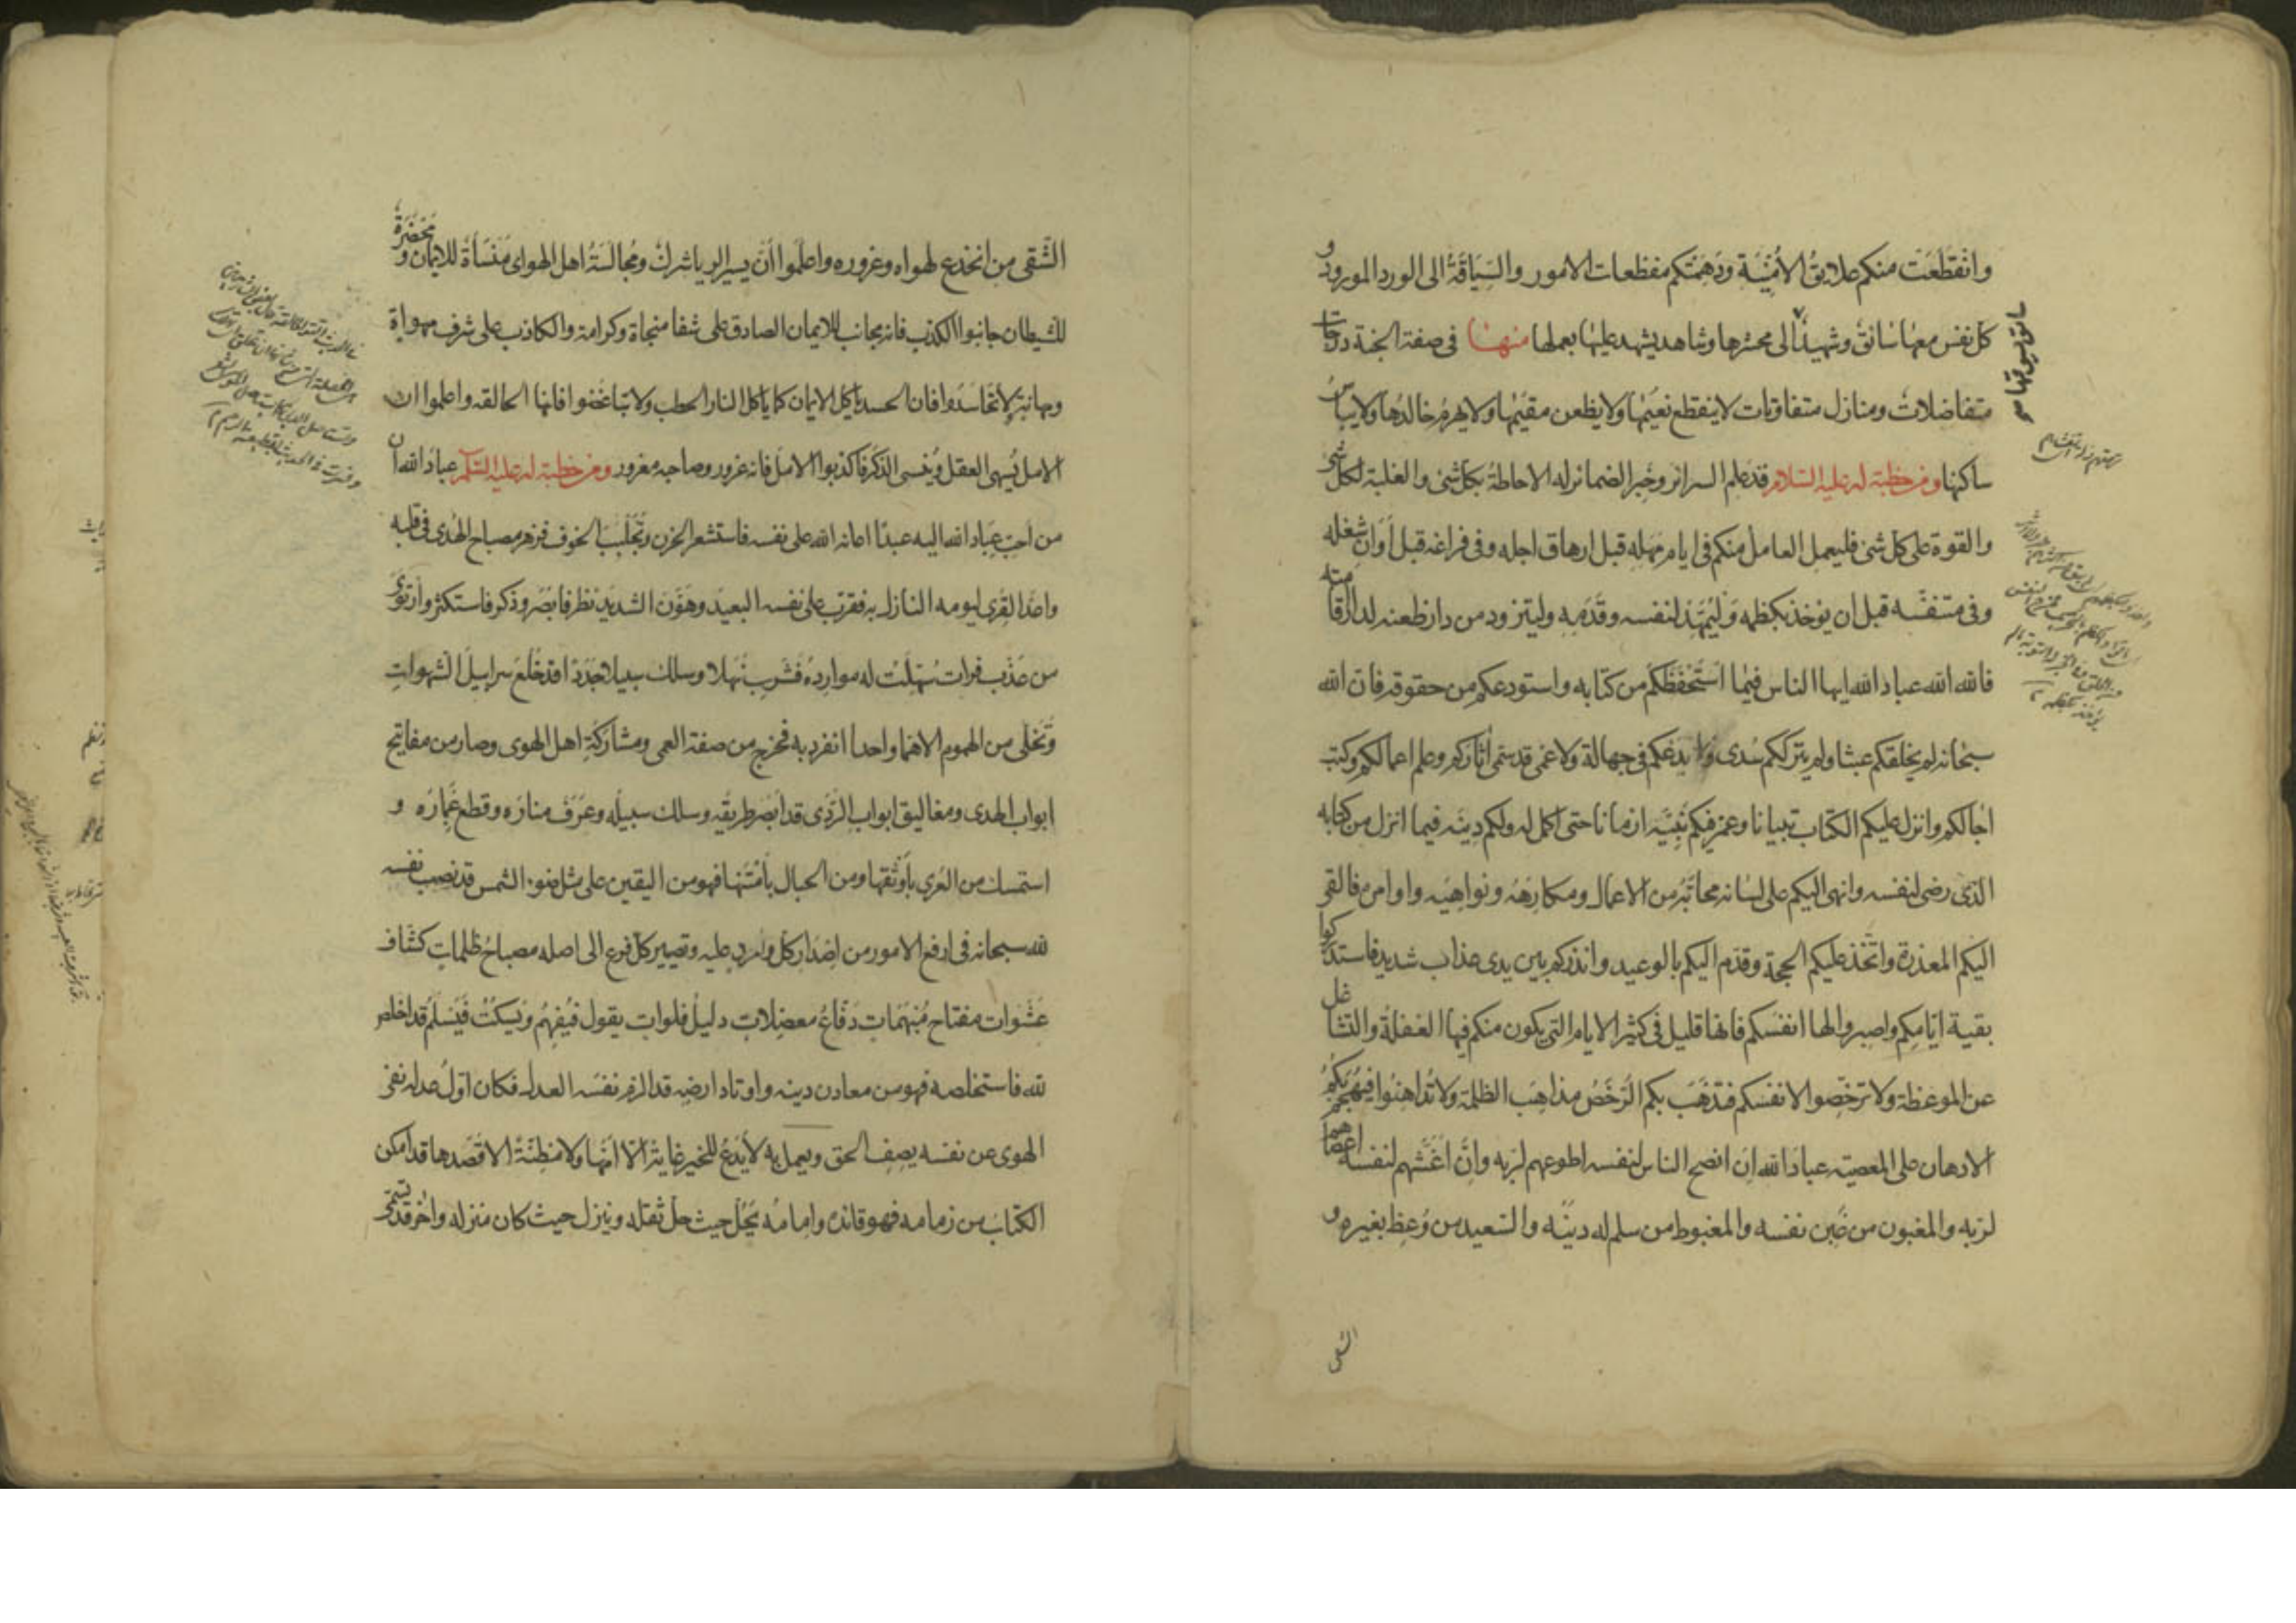 وانقطعت منكم علايق الأمنية ودهمتكم مفظعات الامور والسياقة الى الورد المورود و
كل نفس معها سائق وشهيد سائق يسوقها الى محشرها وشاهد يشهد عليها بعملها منها فى صفة الجنة درجات
متفاضلات ومنازل متفاوتات لا ينقطع نعيمها ولا يظعن مقيمها ولا يهرم خالدها ولا يبأس
ساكنها ومن خطبة له عليه السلام قد علم السرائر وخبر الضمائر له الاحاطة بكل شئ والغلبة لكل شئ
والقوة على كل شئ فليعمل العامل منكم فى ايام مهله قبل ارهاق اجله وفى فراغه قبل أوان شغله
وفى متنفسه قبل ان يوخذ بكظمه وليمهد لنفسه وقدمه وليتزود من دار ظعنه لدار اقامته
فالله الله عباد الله ايها الناس فيما استحفظكم من كتابه واستودعكم من حقوقه فان الله
سبحانه لم يخلقكم عبثا ولم يترككم سدى ولا يدعكم فى جهالة ولا عمى قد سمى آثاركم وعلم اعمالكم وكتب
اجالكم وانزل عليكم الكتاب تبيانا وعمر فيكم نبيه ازمانا حتى اكمل له ولكم دينه فيما انزل من كتابه
الذى رضى لنفسه وانهى اليكم على لسانه محابه من الاعمال ومكارهه ونواهيه واوامره فالقى
اليكم المعذرة واتخذ عليكم الحجة وقدم اليكم بالوعيد وانذركم بين يدى عذاب شديد فاستدركوا
بقية ايامكم واصبروا لها انفسكم فانها قليل فى كثير الايام التى يكون منكم فيها الغفلة والتشاغل
عن الموعظة ولا ترخصوا لانفسكم فتذهب بكم الرخص مذاهب الظلمة ولا تداهنوا فيهجم بكم
الادهان على المعصية عباد الله ان انصح الناس لنفسه اطوعهم لربه وان اغشهم لنفسه اعصاهم
لربه والمغبون من غبن نفسه والمغبوط من سلم له دينه والسعيد من وعظ بغيره و
الشقى
الشقى من انخدع لهواه وغروره واعلموا أن يسير الريا شرك ومجالسة اهل الهوى منسأة للايمان ومحضرة
للشيطان جانبوا الكذب فانه مجانب للايمان الصادق على شفا منجاة وكرامة والكاذب على شرف مهواة
ومهانة لا تحاسدوا فان الحسد ياكل الايمان كما ياكل النار الحطب ولا تباغضوا فانها الحالقه واعلموا ان
الامل يسهى العقل وينسى الذكر فاكذبوا الامل فانه غرور وصاحبه مغرور ومن خطبة له عليه السلام عباد الله ان
من احب عباد الله اليه عبدا اعانه الله على نفسه فاستشعر الحزن وتجلبب الخوف فزهر مصباح الهدى فى قلبه
واعد القرى ليومه النازل به فقرب على نفسه البعيد وهون الشديد نظر فابصر وذكر فاستكثر وارتوى
من عذب فرات سهلت له موارده فشرب نهلا وسلك سبيلا جددا قد خلع سرابيل الشهوات
وتخلى من الهموم الا هما واحدا انفرد به فخرج من صفة العمى ومشاركة اهل الهوى وصار من مفاتيح
ابواب الهدى ومغاليق ابواب الردى قد ابصر طريقه وسلك سبيله وعرف مناره وقطع غماره و
استمسك من العرى بأوثقها ومن الحبال بأمتنها فهو من اليقين على مثل ضوء الشمس قد نصب نفسه
لله سبحانه فى ارفع الامور من اصدار كل وارد عليه وتصيير كل فرع الى اصله مصباح ظلمات كشاف
عشوات مفتاح مبهمات دفاع معضلات دليل فلوات يقول فيفهم ويسكت فيسلم قد اخلص
لله فاستخلصه فهو من معادن دينه واوتاد ارضه قد الزم نفسه العدل فكان اول عدله نفى
الهوى عن نفسه يصف الحق ويعمل به لا يدع للخير غاية الا امها ولا مظنة الا قصدها قد امكن
الكتاب من زمامه فهو قائده وامامه يحل حيث حل ثقله وينزل حيث كان منزله واخر قد تسمى